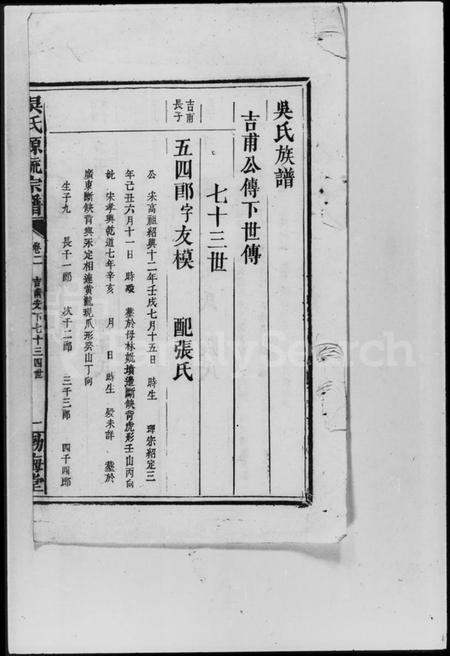 吳氏族譜
吉甫公傳下世傳
七十三世
吉甫長子
五四郎字友模 配張氏
公 宋高祖紹興十二年壬戌七月十五日 時生 理宗紹定二
年己丑六月十一日 時歿 葬於母林妣墳邊斷俠背虎形壬山丙向
妣 宋孝興乾道七年辛亥 月 日 時生 歿未詳 葬於
廣東斷俠背與永定相連黃龍現爪形癸山丁向
生子九 長千一郎 次千二郎 三千三郎 四千四郎
吳氏源流宗譜
卷二 吉甫支下七十三四世
一
渤海堂
FamilySearch